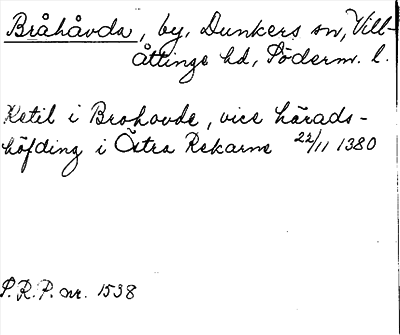 Bråhåvda, by, Dunkers sn, Vill-
åttinge hd, Söderm. l.
Ketil i Brohovde, vice härads-
höfding i Östra Rekarne 22/11 1380
S.R.P. nr. 1538